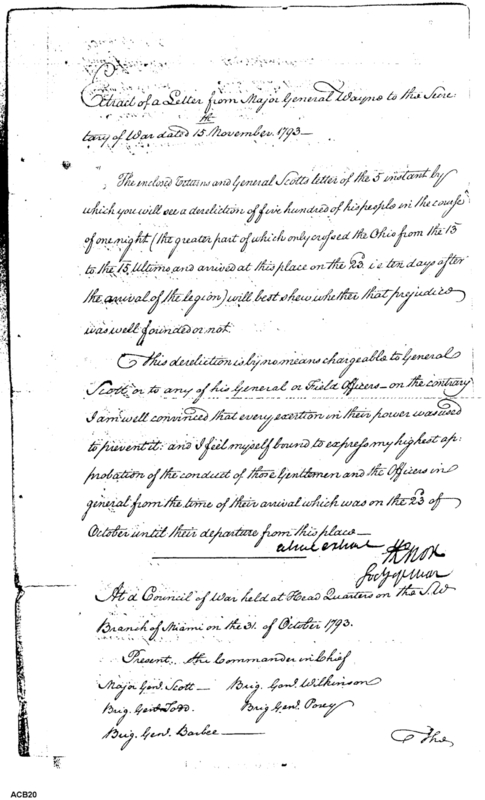 Extract of a Letter from Major General Wayne to the Secre
tary of War dated 15th November. 1793—
The enclosed returns and General Scotts letter of the 5 instant by
which you will see a dereliction of five hundred of his people in the course
of one night (the greater part of which only crossed the Ohio from the 13
to the 15 Ultimo and arrived at this place on the 23d. i.e ten days after
the arrival of the legion) will best shew whether that prejudice
was well founded or not.
This dereliction is by no means chargeable to General
Scott or to any of his General or Field Officers— on the contrary
I am well convinced that every exertion in their power was used
to prevent it: and I feel myself bound to express my highest ap:
probation of the conduct of those Gentlemen and the Officers in
general from the time of their arrival which was on the 23d of
October until their departure from this place—
a true extract
HKnox
Secy of war
At a Council of War held at Head Quarters on the S.W
Branch of Miami on the 31. of October 1793.
Present, the Commander in Chief
Major Genl. Scott— Brig. Genl. Wilkinson
Brig. Genl. Todd. Brig Genl. Posey
Brig. Genl. Barbee—
The
ACB20